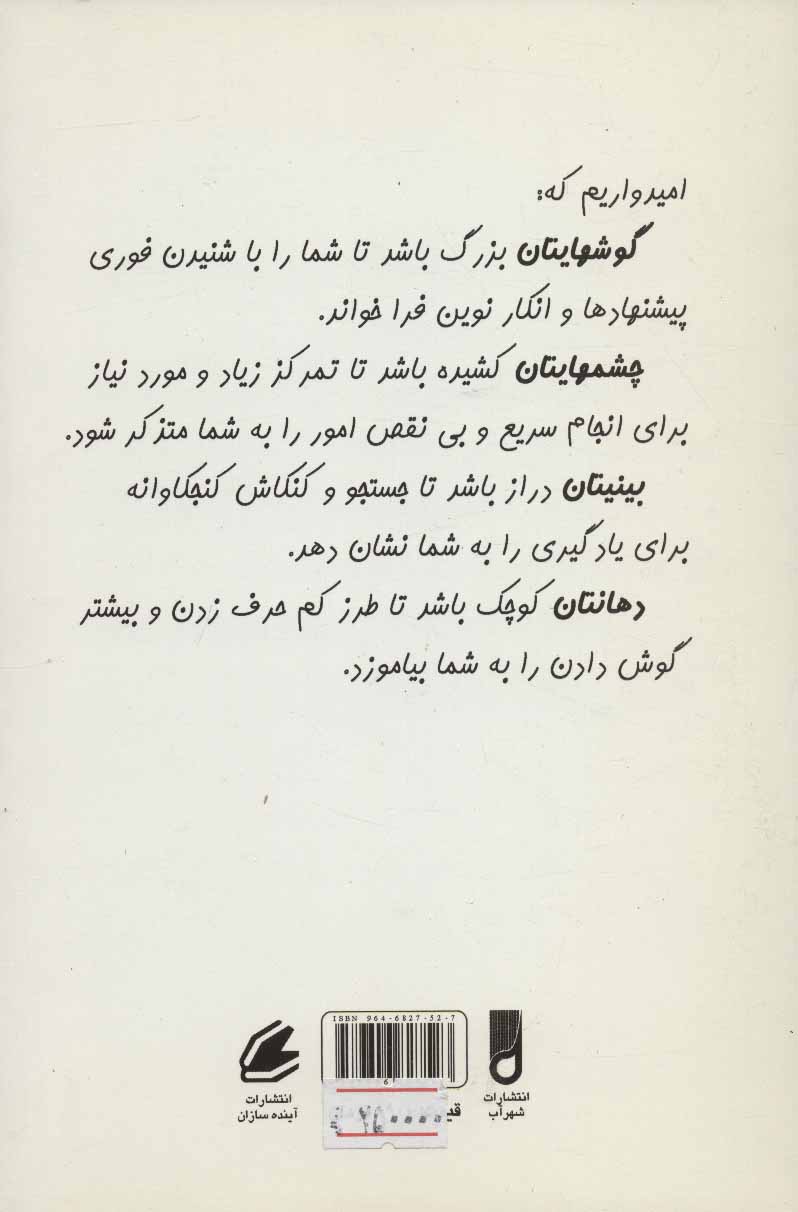 امیدواریم که:
گوشهایتان بزرگ باشد تا شما را با شنیدن فوری
پیشنهادها و انکار نوین فرا خواند.
چشمهایتان کشیده باشد تا تمرکز زیاد و مورد نیاز
برای انجام سریع و بی نقص امور را به شما متذکر شود.
بینیتان دراز باشد تا جستجو و کنکاش کنجکاوانه
برای یادگیری را به شما نشان دهد.
دهانتان کوچک باشد تا طرز کم حرف زدن و بیشتر
گوش دادن را به شما بیاموزد.
ISBN 964-6827-52-7
انتشارات
شهرآب
انتشارات
آینده سازان